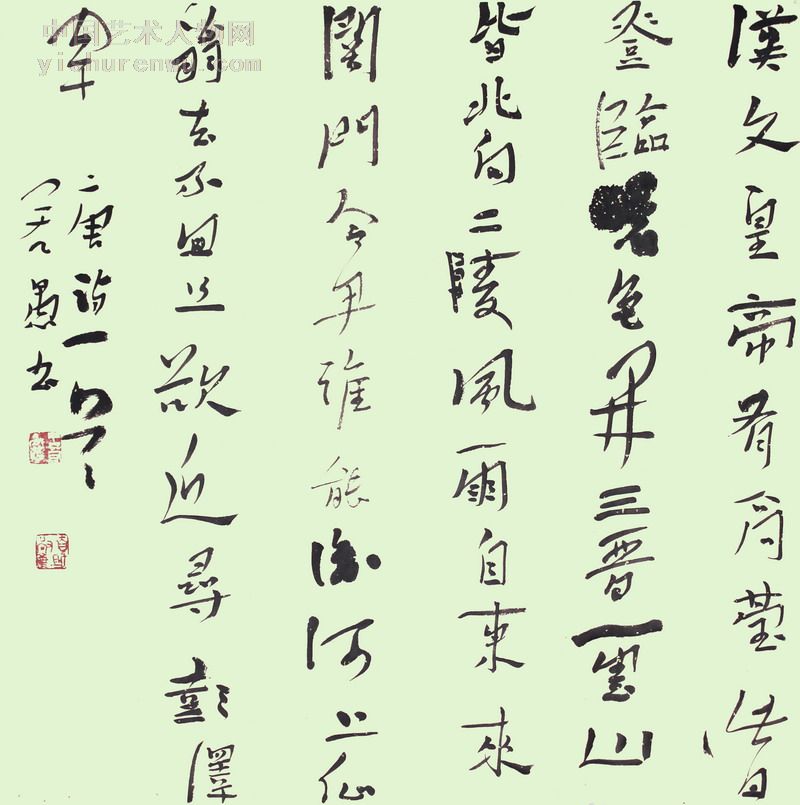 漢文皇帝有高臺此日
登臨曙色開三晉雲山
皆北向二陵風雨自東來
關門令尹誰能識河上仙
翁去不回且欲近尋彭澤
宰
唐詩一首
愚書
中国艺术人物网